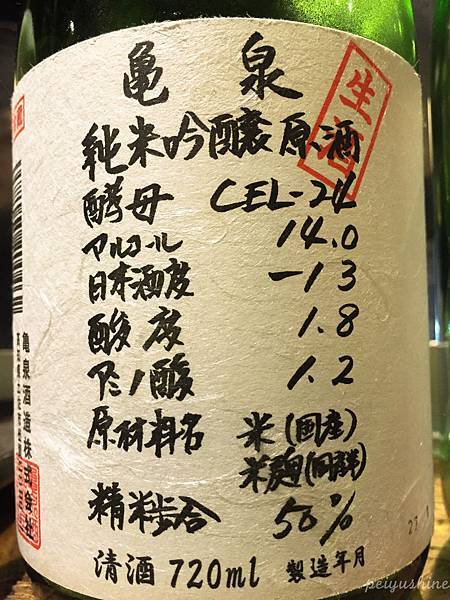 亀泉
生酒
純米吟醸原酒
酵母 CEL-24
アルコール 14.0
日本酒度 -13
酸度 1.8
アミノ酸 1.2
原材料名 米(国産)
米麹(国産)
精米歩合 50%
清酒 720ml 製造年月
亀泉酒造株式会社
peiyushine